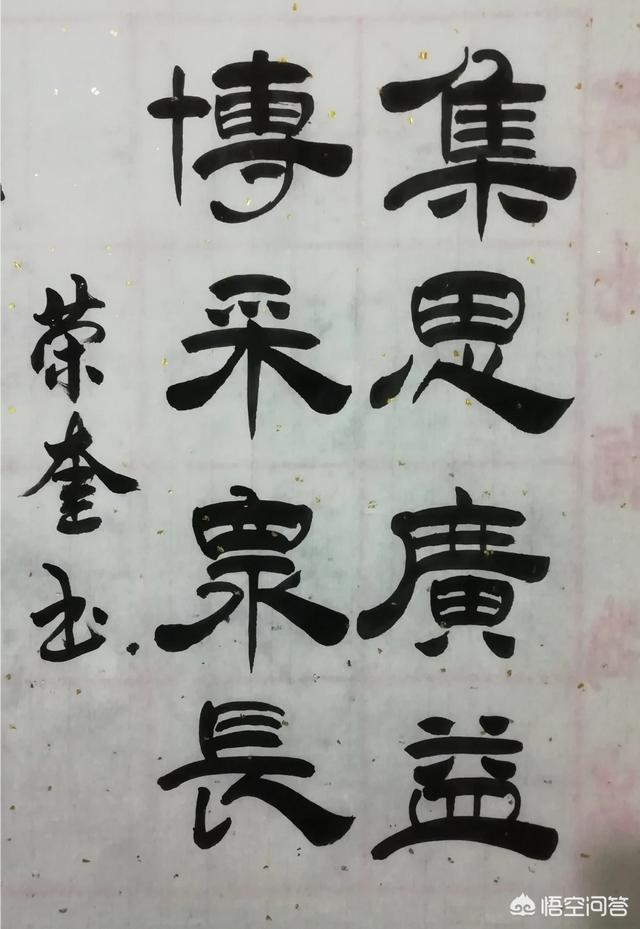 集思廣益
博采眾長
荣奎书
悟空问答